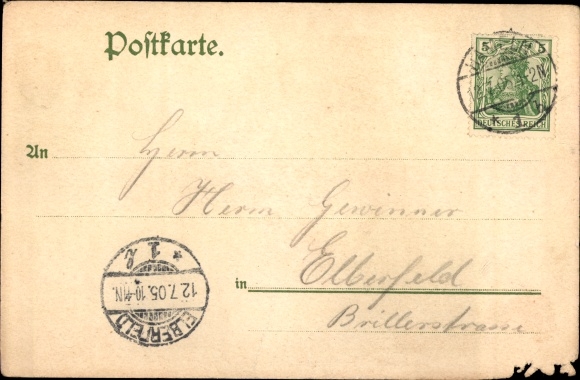 Postkarte.
5 5
DEUTSCHES REICH
An Herrn
Herm. Gewinner
in Elberfeld
Brillerstrasse
ELBERFELD
12.7.05.10-11N.
* 1 l